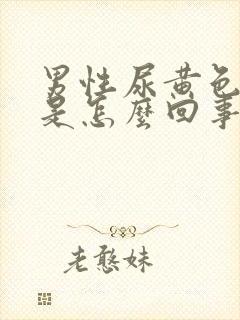 男性尿黄色
是怎麼回事
老憨妹